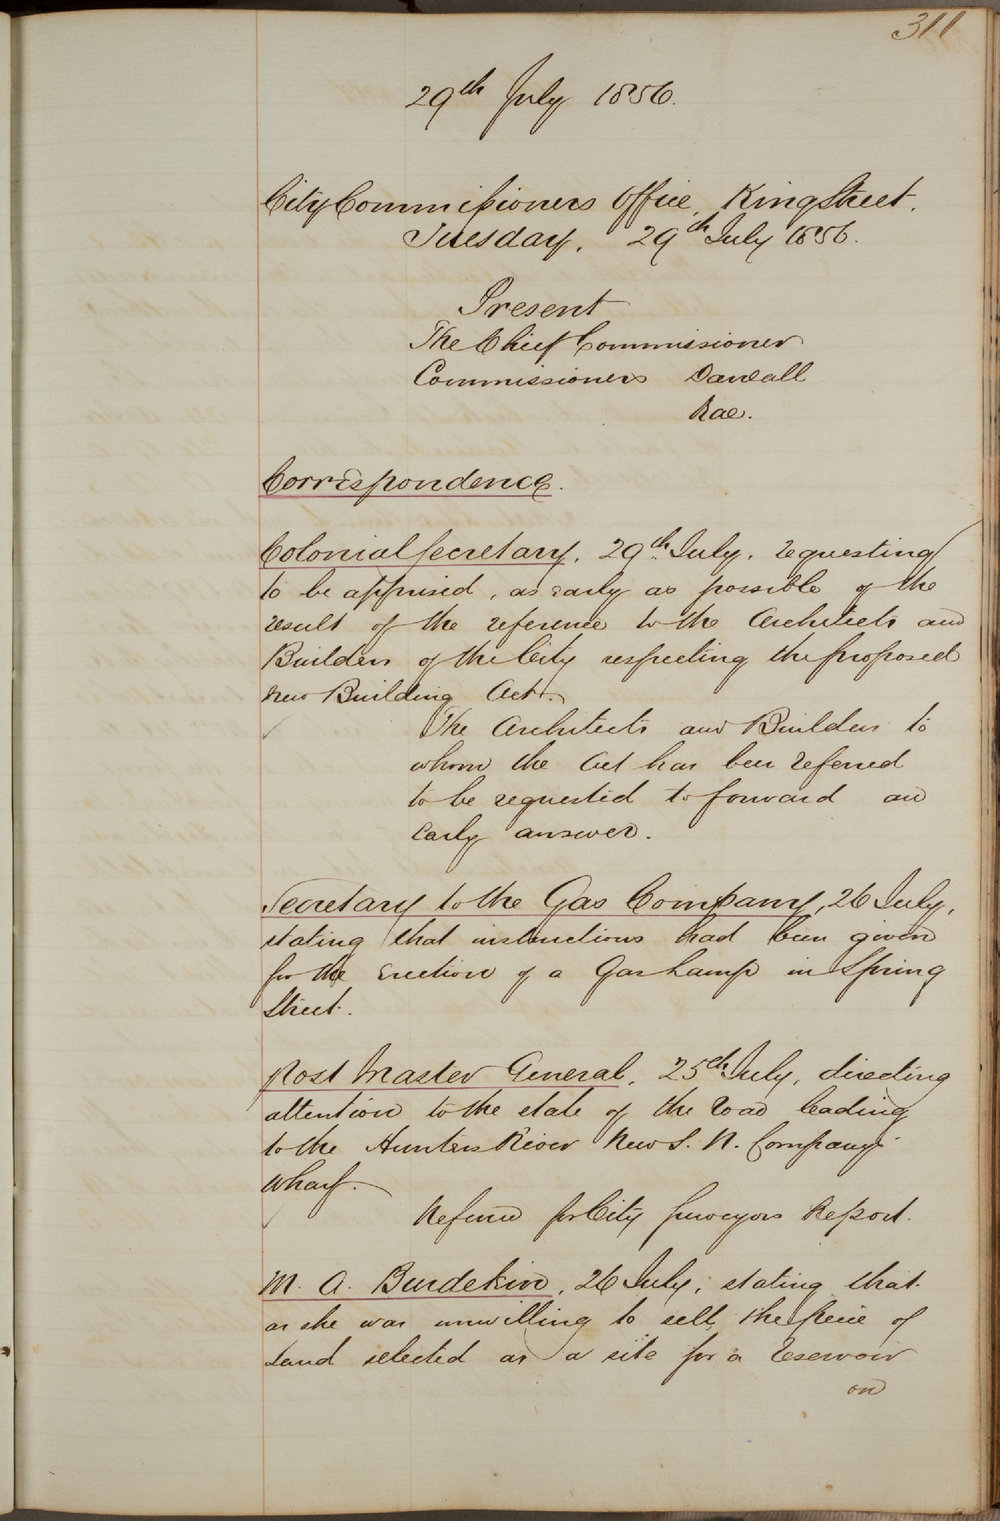 311
29th July 1856.
City Commissioners Office, King Street.
Tuesday, 29th July 1856.
Present
The Chief Commissioner
Commissioners Darvall
Rae.
Correspondence.
Colonial Secretary, 29th July, requesting
to be apprised, as early as possible of the
result of the reference to the Architects and
Builders of the City respecting the proposed
new Building Act.
The Architects and Builders to
whom the Act has been referred
to be requested to forward an
early answer.
Secretary to the Gas Company, 26 July,
stating that instructions had been given
for the erection of a Gas Lamp in Spring
Street.
Post Master General, 25th July, directing
attention to the state of the road leading
to the Hunters River New S. N. Company's
Wharf.
Referred for City Surveyors Report.
M. A. Burdekin, 26 July, stating that
as she was unwilling to sell the piece of
Land selected as a site for a reservoir
on